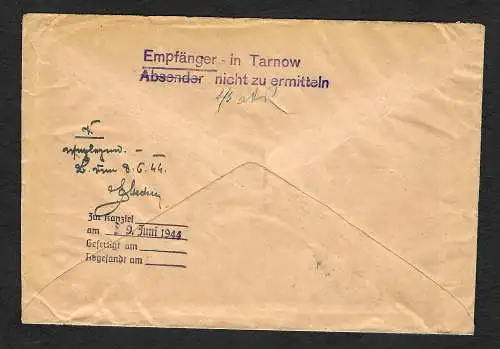 Empfänger - in Tarnow
Absender nicht zu ermitteln
den 8.6.44.
Zur Kanzlei
am 9. Juni 1944
Gefertigt am
Abgesandt am